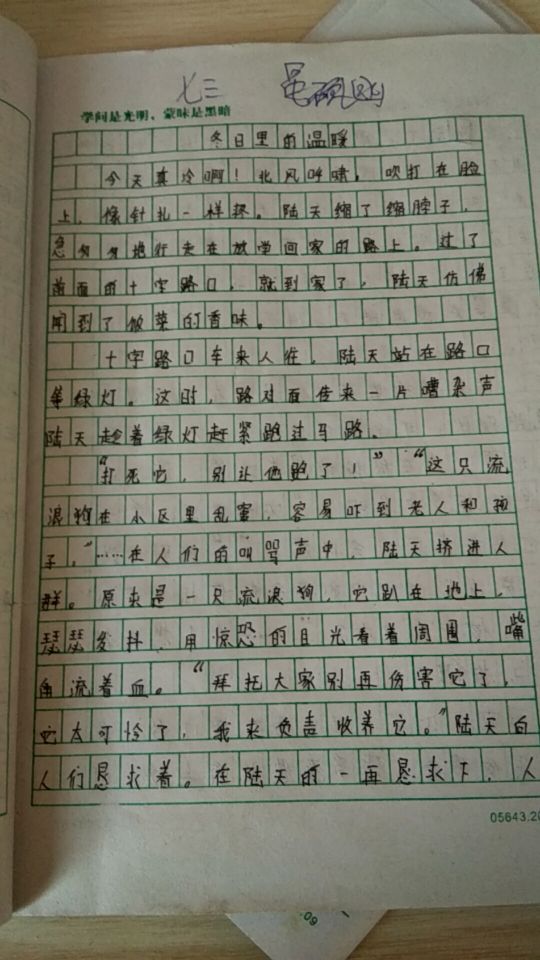 七三
学问是光明，蒙昧是黑暗
冬日里的温暖
今天真冷啊！北风呼啸，吹打在脸
上，像针扎一样疼。陆天缩了缩脖子，
急匆匆地行走在放学回家的路上。过了
前面的十字路口，就到家了，陆天仿佛
闻到了饭菜的香味。
十字路口车来人往，陆天站在路口
等绿灯。这时，路对面传来一片嘈杂声
陆天趁着绿灯赶紧跑过马路。
“打死它，别让他跑了！”“这只流
浪狗在小区里乱窜，容易吓到老人和孩
子。”……在人们的叫骂声中，陆天挤进人
群。原来是一只流浪狗，它趴在地上，
瑟瑟发抖，用惊恐的目光看着周围，嘴
角流着血。“拜托大家别再伤害它了，
它太可怜了，我来负责收养它。”陆天向
人们恳求着。在陆天的一再恳求下，人
05643.20